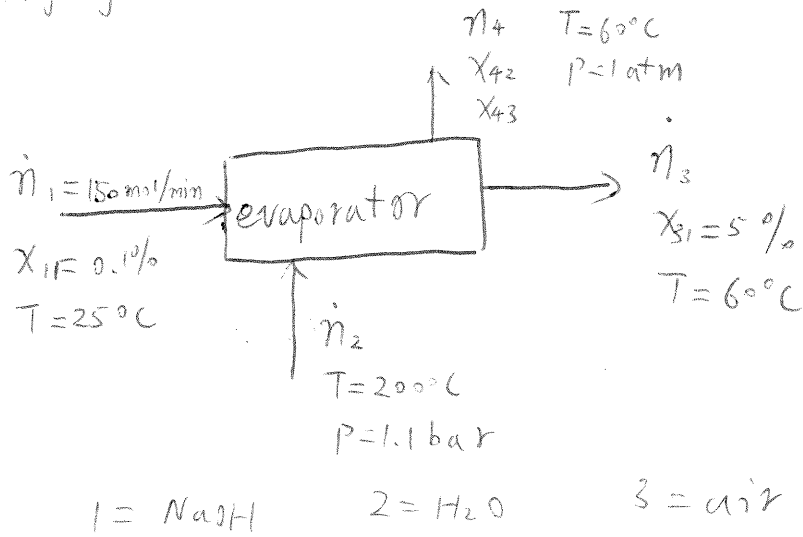 n4 T=60°C
X42 P=1 atm
X43
ṅ1 = 150 mol/min
X11 = 0.1%
T=25°C
evaporator
ṅ3
X31 = 5%
T=60°C
ṅ2
T=200°C
P=1.1 bar
1 = NaOH 2 = H2O 3 = air